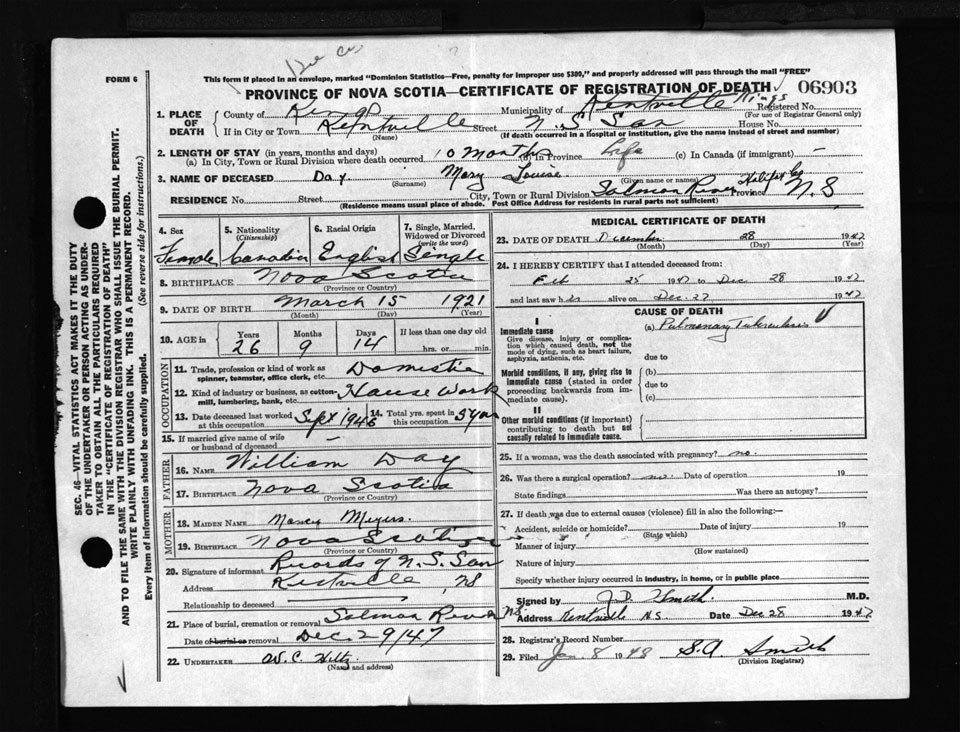 FORM 6
This form if placed in an envelope, marked "Dominion Statistics—Free, penalty for improper use $300," and properly addressed will pass through the mail "FREE"
PROVINCE OF NOVA SCOTIA—CERTIFICATE OF REGISTRATION OF DEATH 06903
1. PLACE OF DEATH
County of Kings Municipality of Kentville Kings Registered No.
(For use of Registrar General only)
If in City or Town Kentville Street N.S San House No.
(Name) (If death occurred in a hospital or institution, give the name instead of street and number)
2. LENGTH OF STAY (in years, months and days)
(a) In City, Town or Rural Division where death occurred 10 months (b) In Province Life (c) In Canada (if immigrant) —
3. NAME OF DECEASED Day Mary Louise
(Surname) (Given name or names)
RESIDENCE No. Street City, Town or Rural Division Salmon River Halifax Co Province N.S
(Residence means usual place of abode. Post Office Address for residents in rural parts not sufficient)
4. Sex
Female
5. Nationality
(Citizenship)
Canadian
6. Racial Origin
English
7. Single, Married, Widowed or Divorced
(write the word)
Single
8. BIRTHPLACE Nova Scotia
(Province or Country)
9. DATE OF BIRTH March 15 1921
(Month) (Day) (Year)
10. AGE in Years Months Days If less than one day old
26 9 14 hrs. or min.
OCCUPATION
11. Trade, profession or kind of work as spinner, teamster, office clerk, etc. Domestic
12. Kind of industry or business, as cotton-mill, lumbering, bank, etc. House Work
13. Date deceased last worked at this occupation Sept 1946
14. Total yrs. spent in this occupation 5 yrs
15. If married give name of wife or husband of deceased —
FATHER
16. NAME William Day
17. BIRTHPLACE Nova Scotia
(Province or Country)
MOTHER
18. MAIDEN NAME Nancy Meyers
19. BIRTHPLACE Nova Scotia
(Province or Country)
20. Signature of informant Records of N.S. San
Address Kentville NS
Relationship to deceased
21. Place of burial, cremation or removal Salmon River NS
Date of burial or removal Dec 29/47
22. UNDERTAKER W.C. Hiltz
(Name and address)
MEDICAL CERTIFICATE OF DEATH
23. DATE OF DEATH December 28 1947
(Month) (Day) (Year)
24. I HEREBY CERTIFY that I attended deceased from:
Feb 25 1947 to Dec 28 1947
and last saw her alive on Dec. 27 1947
CAUSE OF DEATH
I
Immediate cause
Give disease, injury or complication which caused death, not the mode of dying, such as heart failure, asphyxia, asthenia, etc.
(a) Pulmonary Tuberculosis
due to
Morbid conditions, if any, giving rise to immediate cause (stated in order proceeding backwards from immediate cause).
(b)
due to
(c)
II
Other morbid conditions (if important) contributing to death but not causally related to immediate cause.
25. If a woman, was the death associated with pregnancy? no.
26. Was there a surgical operation? no. Date of operation 19
State findings Was there an autopsy?
27. If death was due to external causes (violence) fill in also the following:—
Accident, suicide or homicide? Date of injury 19
(State which)
Manner of injury
(How sustained)
Nature of injury
Specify whether injury occurred in industry, in home, or in public place
Signed by M.D.
Address Kentville N.S. Date Dec 28 1947
28. Registrar's Record Number
29. Filed Jan. 8 1948 S.A. Smith
(Division Registrar)
SEC. 46—VITAL STATISTICS ACT MAKES IT THE DUTY
OF THE UNDERTAKER OR PERSON ACTING AS UNDERTAKER TO OBTAIN ALL THE PARTICULARS REQUIRED
IN THE "CERTIFICATE OF REGISTRATION OF DEATH"
AND TO FILE THE SAME WITH THE DIVISION REGISTRAR WHO SHALL ISSUE THE BURIAL PERMIT.
WRITE PLAINLY WITH UNFADING INK. THIS IS A PERMANENT RECORD.
Every item of information should be carefully supplied. (See reverse side for instructions.)